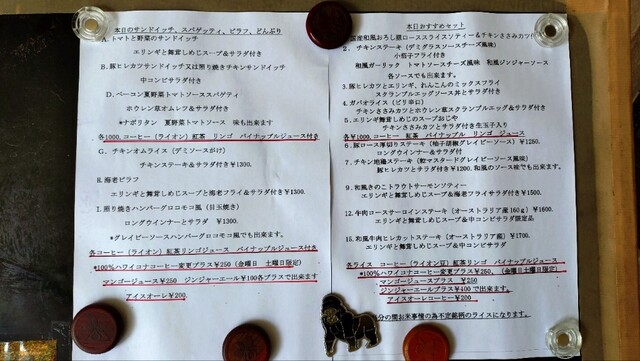 本日のサンドイッチ、スパゲッティ、ピラフ、どんぶり
A. トマトと野菜のサンドイッチ
エリンギと舞茸しめじスープ＆サラダ付き
B. 豚ヒレカツサンドイッチ又は照り焼きチキンサンドイッチ
中コンビサラダ付き
D. ベーコン夏野菜トマトソーススパゲティ
ホウレン草オムレツ＆サラダ付き
*ナポリタン 夏野菜トマトソース 味も出来ます
各1000. コーヒー（ライオン）紅茶 リンゴ パイナップルジュース付き
G. チキンオムライス（デミソースがけ）
チキンステーキ＆サラダ付き¥1300.
H. 海老ピラフ
エリンギと舞茸しめじスープと海老フライ＆サラダ付き¥1300.
I. 照り焼きハンバーグロコモコ風（目玉焼き）
ロングウインナーとサラダ ¥1300.
*グレイビーソースハンバーグロコモコ風も出来ます。
各コーヒー（ライオン）紅茶リンゴジュース パイナップルジュース付き
*100%ハワイコナコーヒー変更プラス¥250（金曜日 土曜日限定）
マンゴージュース¥250 ジンジャーエール¥100各プラスで出来ます
アイスオーレ¥200.
本日おすすめセット
国産和風おろし豚ロースライスソティー＆チキンささみカツ
2. チキンステーキ（デミグラスソースチーズ風味）
小茄子フライ付き
和風ガーリック トマトソースチーズ風味 和風ジンジャーソース
各ソースでも出来ます。
3. 豚ヒレカツとエリンギ、れんこんのミックスフライ
スクランブルエッグソース丼とサラダ付き
4. ガパオライス（ピリ辛口）
チキンささみカツとホウレン草スクランブルエッグ＆サラダ付き
5. エリンギ舞茸しめじのスープおじや
チキンささみカツとサラダ付き生玉子入り
各¥1000. コーヒー 紅茶 パイナップル リンゴ ジュース
6. 豚ロース厚切りステーキ（柚子胡椒グレイビーソース）¥1250.
ロングウインナー＆サラダ付
7. チキン地鶏ステーキ（粒マスタードグレイビーソース風味）
豚ヒレカツとサラダ付け¥1200. 和風のソース味でも出来ます。
9. 和風きのこトラウトサーモンソティー
エリンギと舞茸しめじスープ＆海老フライサラダ付き¥1500.
12. 牛肉ロースサーロインステーキ（オーストラリア産160ｇ）¥1600.
エリンギと舞茸しめじスープ＆中コンビサラダ限定品
15. 和風牛肉ヒレカットステーキ（オーストラリア産）¥1700.
エリンギと舞茸しめじスープ＆中コンビサラダ
各ライス コーヒー（ライオン豆）紅茶リンゴ パイナップルジュース付き
*100%ハワイコナコーヒー変更プラス¥250.（金曜日 土曜日限定）
マンゴージュースプラス ¥250
ジンジャーエールプラス¥100で出来ます。
アイスオーレコーヒー¥200
分の間お米事情の為不定銘柄のライスになります。